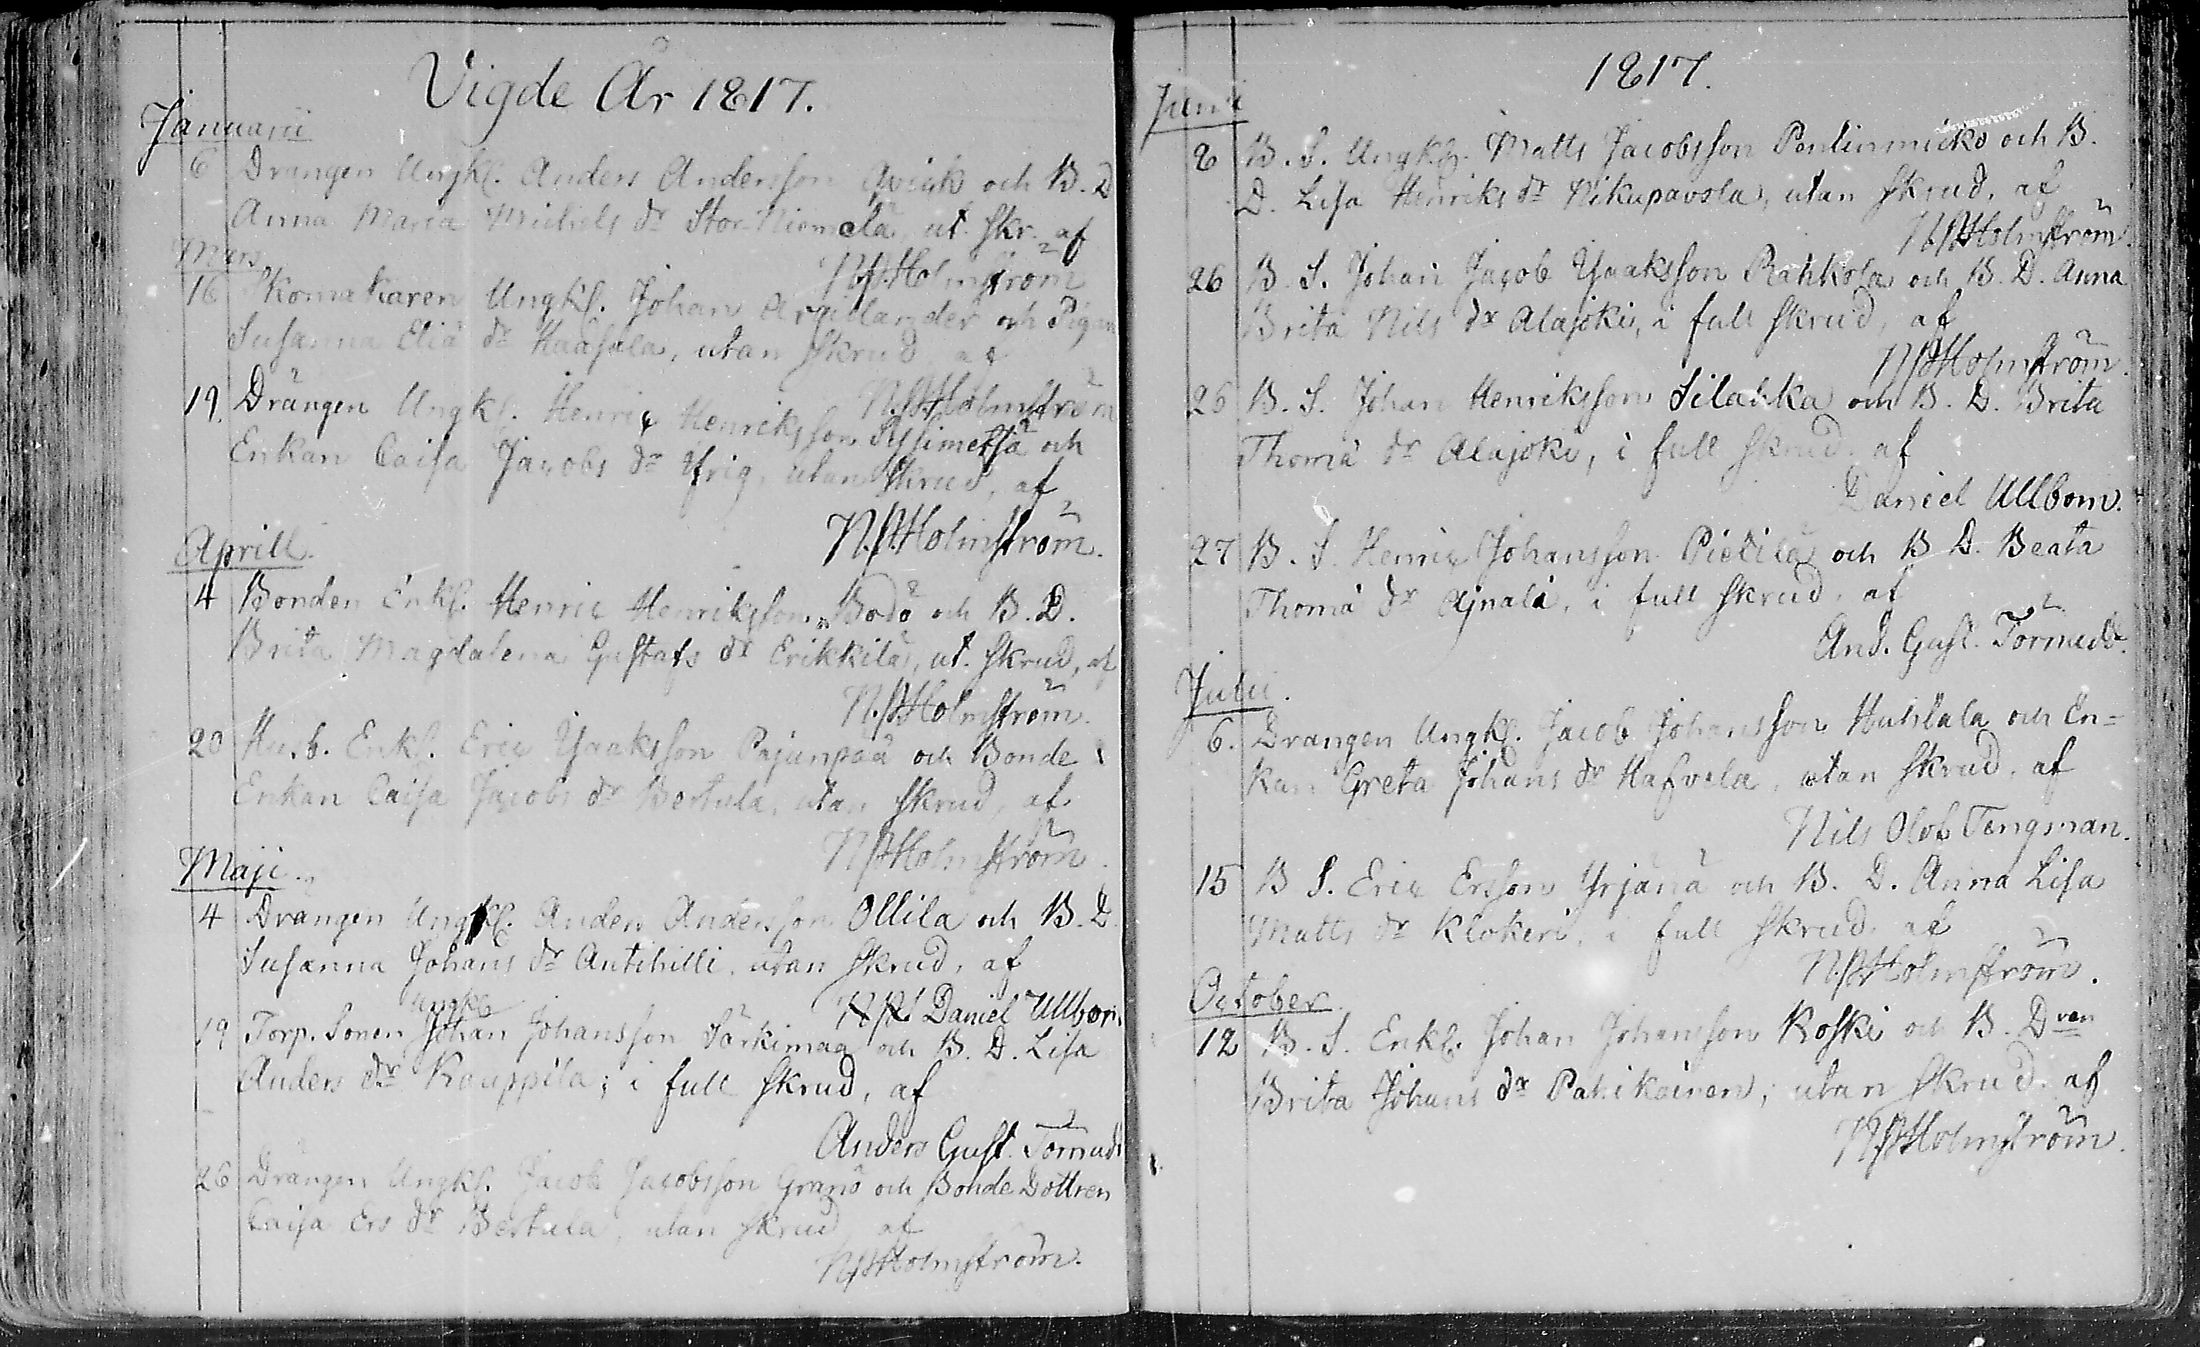 Vigde År 1817.
Januarii
6 Drängen Ungkl. Anders Andersson Qvick och B. D
Anna Maria Michels dr Stor-Niemelä, ut. Skr. af
N. P. Holmström
Mars
16 Skomakaren Ungkl. Johan Argillander och Pigan
Susanna Eliä dr Haasala, utan Skrud af
N. P. Holmström
19. Drängen Ungkl. Henric Henriksson Sysimetsä och
Enkan Caisa Jacobs dr Yrig, utan Skrud, af
N. P. Holmström.
Aprill.
4 Bonden Enkl. Henric Henriksson Bodö och B. D.
Brita Magdalena Gustafs dr Erikkilä, ut. Skrud, af
N. P. Holmström.
20 Husb. Enkl. Eric Ysaksson Pajunpää och Bonde
Enkan Caisa Jacobs dr Bertula, utan Skrud, af
N P Holmström.
Maji.
4 Drängen Ungkl. Anders Andersson Ollila och B. D.
Susanna Johans dr Antihilli, utan Skrud, af
N. P. Daniel Ullbom
Ungkl
19 Torp. Sonen Johan Johansson Särkimaa och B. D. Lisa
Anders dr Kauppila; i full Skrud, af
Anders Gust. Törnudd
26 Drängen Ungkl. Jacob Jacobsson Granö och Bonde Dottren
Caisa Ers dr Bertula, utan Skrud af
N P Holmström.
1817.
Junii
8 B. S. Ungkl. Matts Jacobsson Pentinmicko och B.
D. Lisa Henriks dr Nikupavola, utan Skrud, af
N. P. Holmström.
26 B. S. Johan Jacob Ysaksson Rahkola och B. D. Anna
Brita Nils dr Alajoki, i full Skrud, af
N P Holmström.
26 B. S. Johan Henriksson Silakka och B. D. Brita
Thomä dr Alajoki, i full Skrud, af
Daniel Ullbom.
27 B. S. Henric Johansson Pietilä och B D. Beata
Thomä dr Ajnali, i full Skrud, af
And. Gust. Törnudd.
Julii.
6. Drängen Ungkl. Jacob Johansson Huhtala och En=
kan Greta Johans dr Hafvela, utan Skrud, af
Nils Olof Tengman.
15 B S. Eric Ersson Yrjänä och B. D. Anna Lisa
Matts dr Klokeri, i full Skrud, af
N. P. Holmström.
October
12 B. S. Enkl. Johan Johansson Koski och B. Dren
Brita Johans dr Pakikainen; utan Skrud, af
N P Holmström.